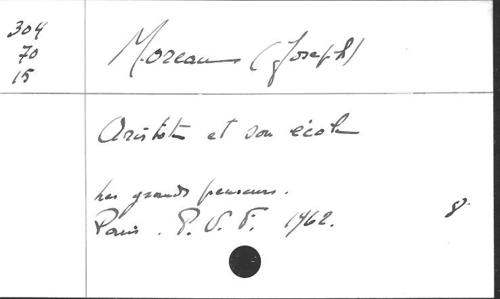 304
70
15
Moreau (Joseph)
Aristote et son école
Les grands penseurs.
Paris. P. U. F. 1962.
8°